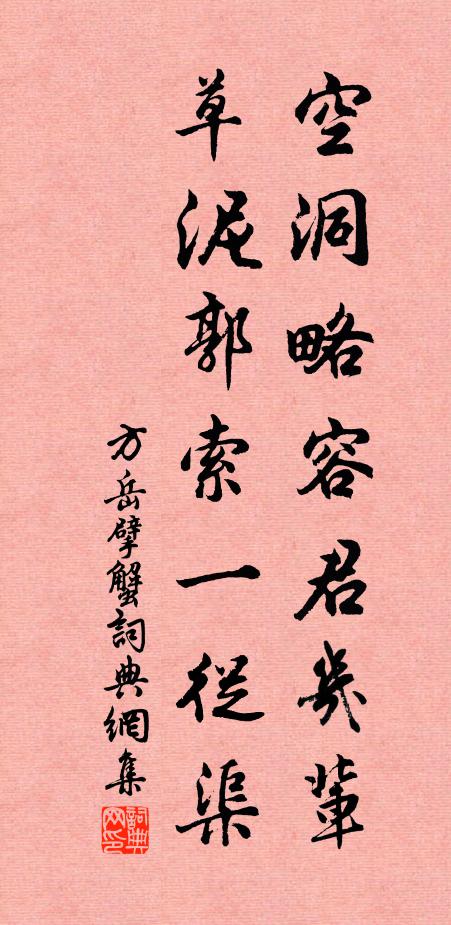 空洞略容君幾輩
草泥郭索一從渠
方岳擘蟹詞典網集
詞典网印